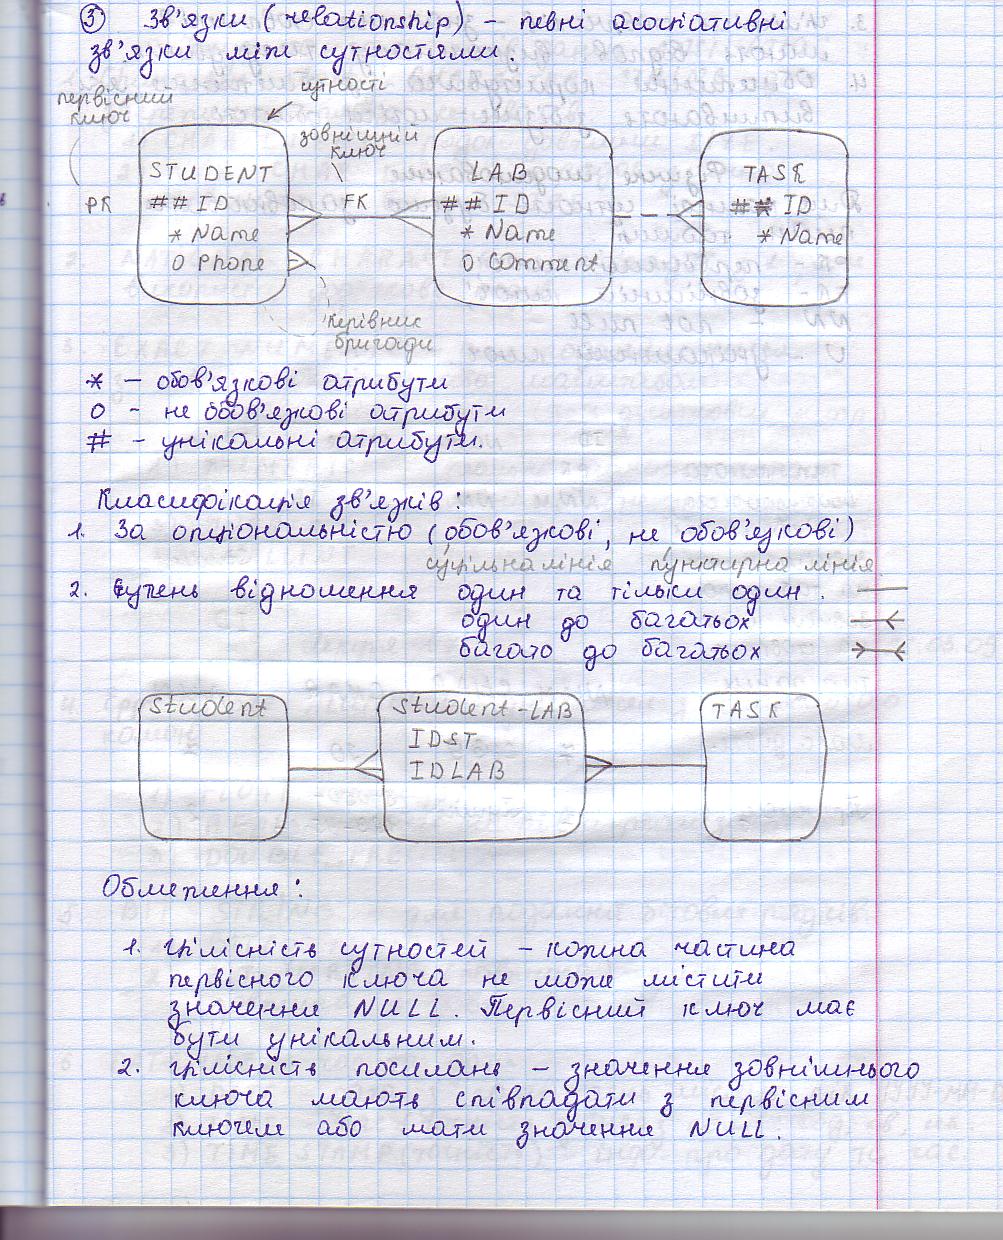 ③ Зв'язки (relationship) – певні асоціативні
зв'язки між сутностями.
первісний
ключ
сутності
зовнішній
ключ
STUDENT
PK ##ID
* Name
O Phone
FK
LAB
##ID
* Name
O Comment
TASK
## ID
* Name
керівник
бригади
* – обов'язкові атрибути
о – не обов'язкові атрибути
# – унікальні атрибути.
Класифікація зв'язків:
1. За опціональністю (обов'язкові, не обов'язкові)
суцільна лінія пунктирна лінія
2. Ступень відношення один та тільки один. —
один до багатьох
багато до багатьох
Student
Student-LAB
IDST
IDLAB
TASK
Обмеження:
1. цілісність сутностей – кожна частина
первісного ключа не може містити
значення NULL. Первісний ключ має
бути унікальним.
2. цілісність посилань – значення зовнішнього
ключа мають співпадати з первісним
ключем або мати значення NULL.